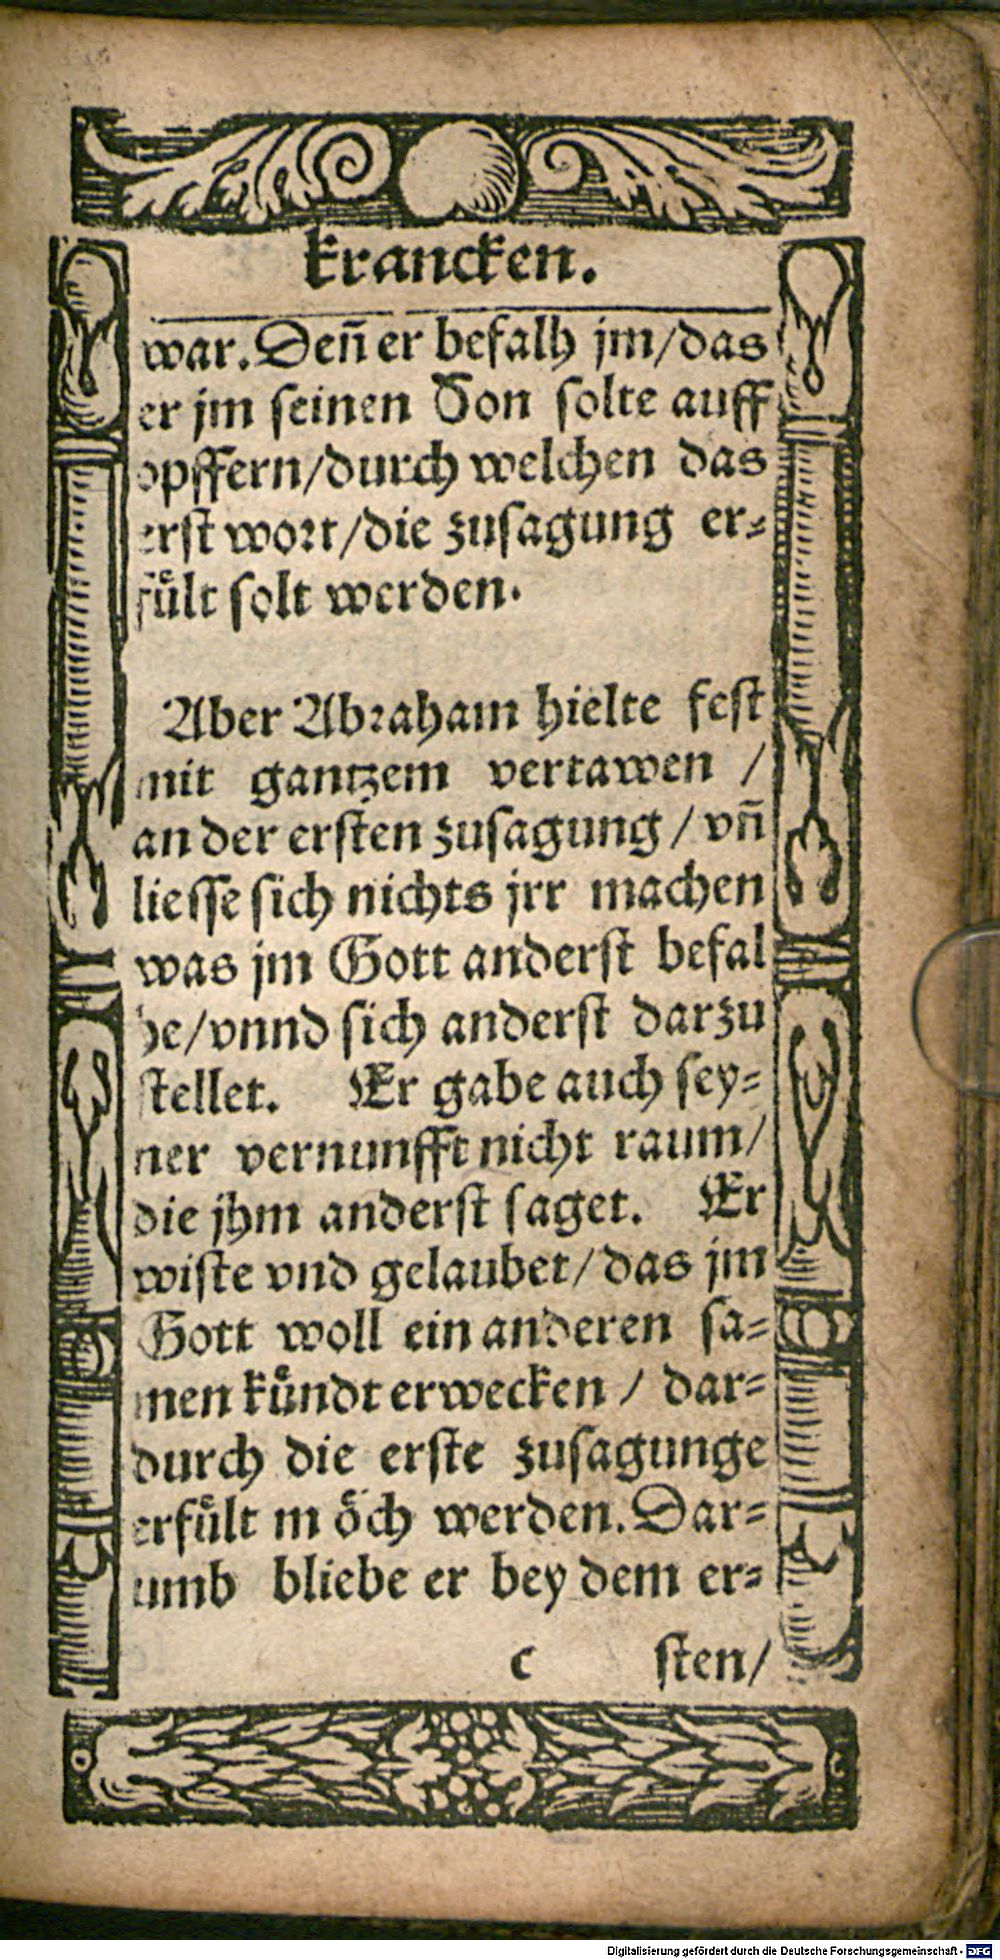 krancken.
war. Deñ er befalh jm/das
er jm seinen Son solte auff
opffern/durch welchen das
erst wort/die zusagung er⸗
fuͤlt solt werden.
Aber Abraham hielte fest
mit gantzem vertawen /
an der ersten zusagung / vñ
liesse sich nichts jrr machen
was jm Gott anderst befal
he/vnnd sich anderst darzu
stellet. Er gabe auch sey⸗
ner vernunfft nicht raum/
die jhm anderst saget. Er
wiste vnd gelaubet/das jm
Gott woll ein anderen sa⸗
men kuͤndt erwecken / dar⸗
durch die erste zusagunge
erfuͤlt m oͤch werden. Dar⸗
umb bliebe er bey dem er⸗
c sten/
Digitalisierung gefördert durch die Deutsche Forschungsgemeinschaft - DFG